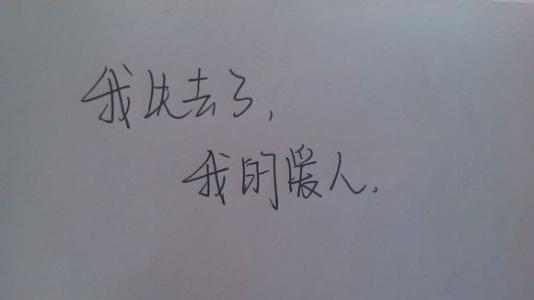 我失去了,
我的暖人.